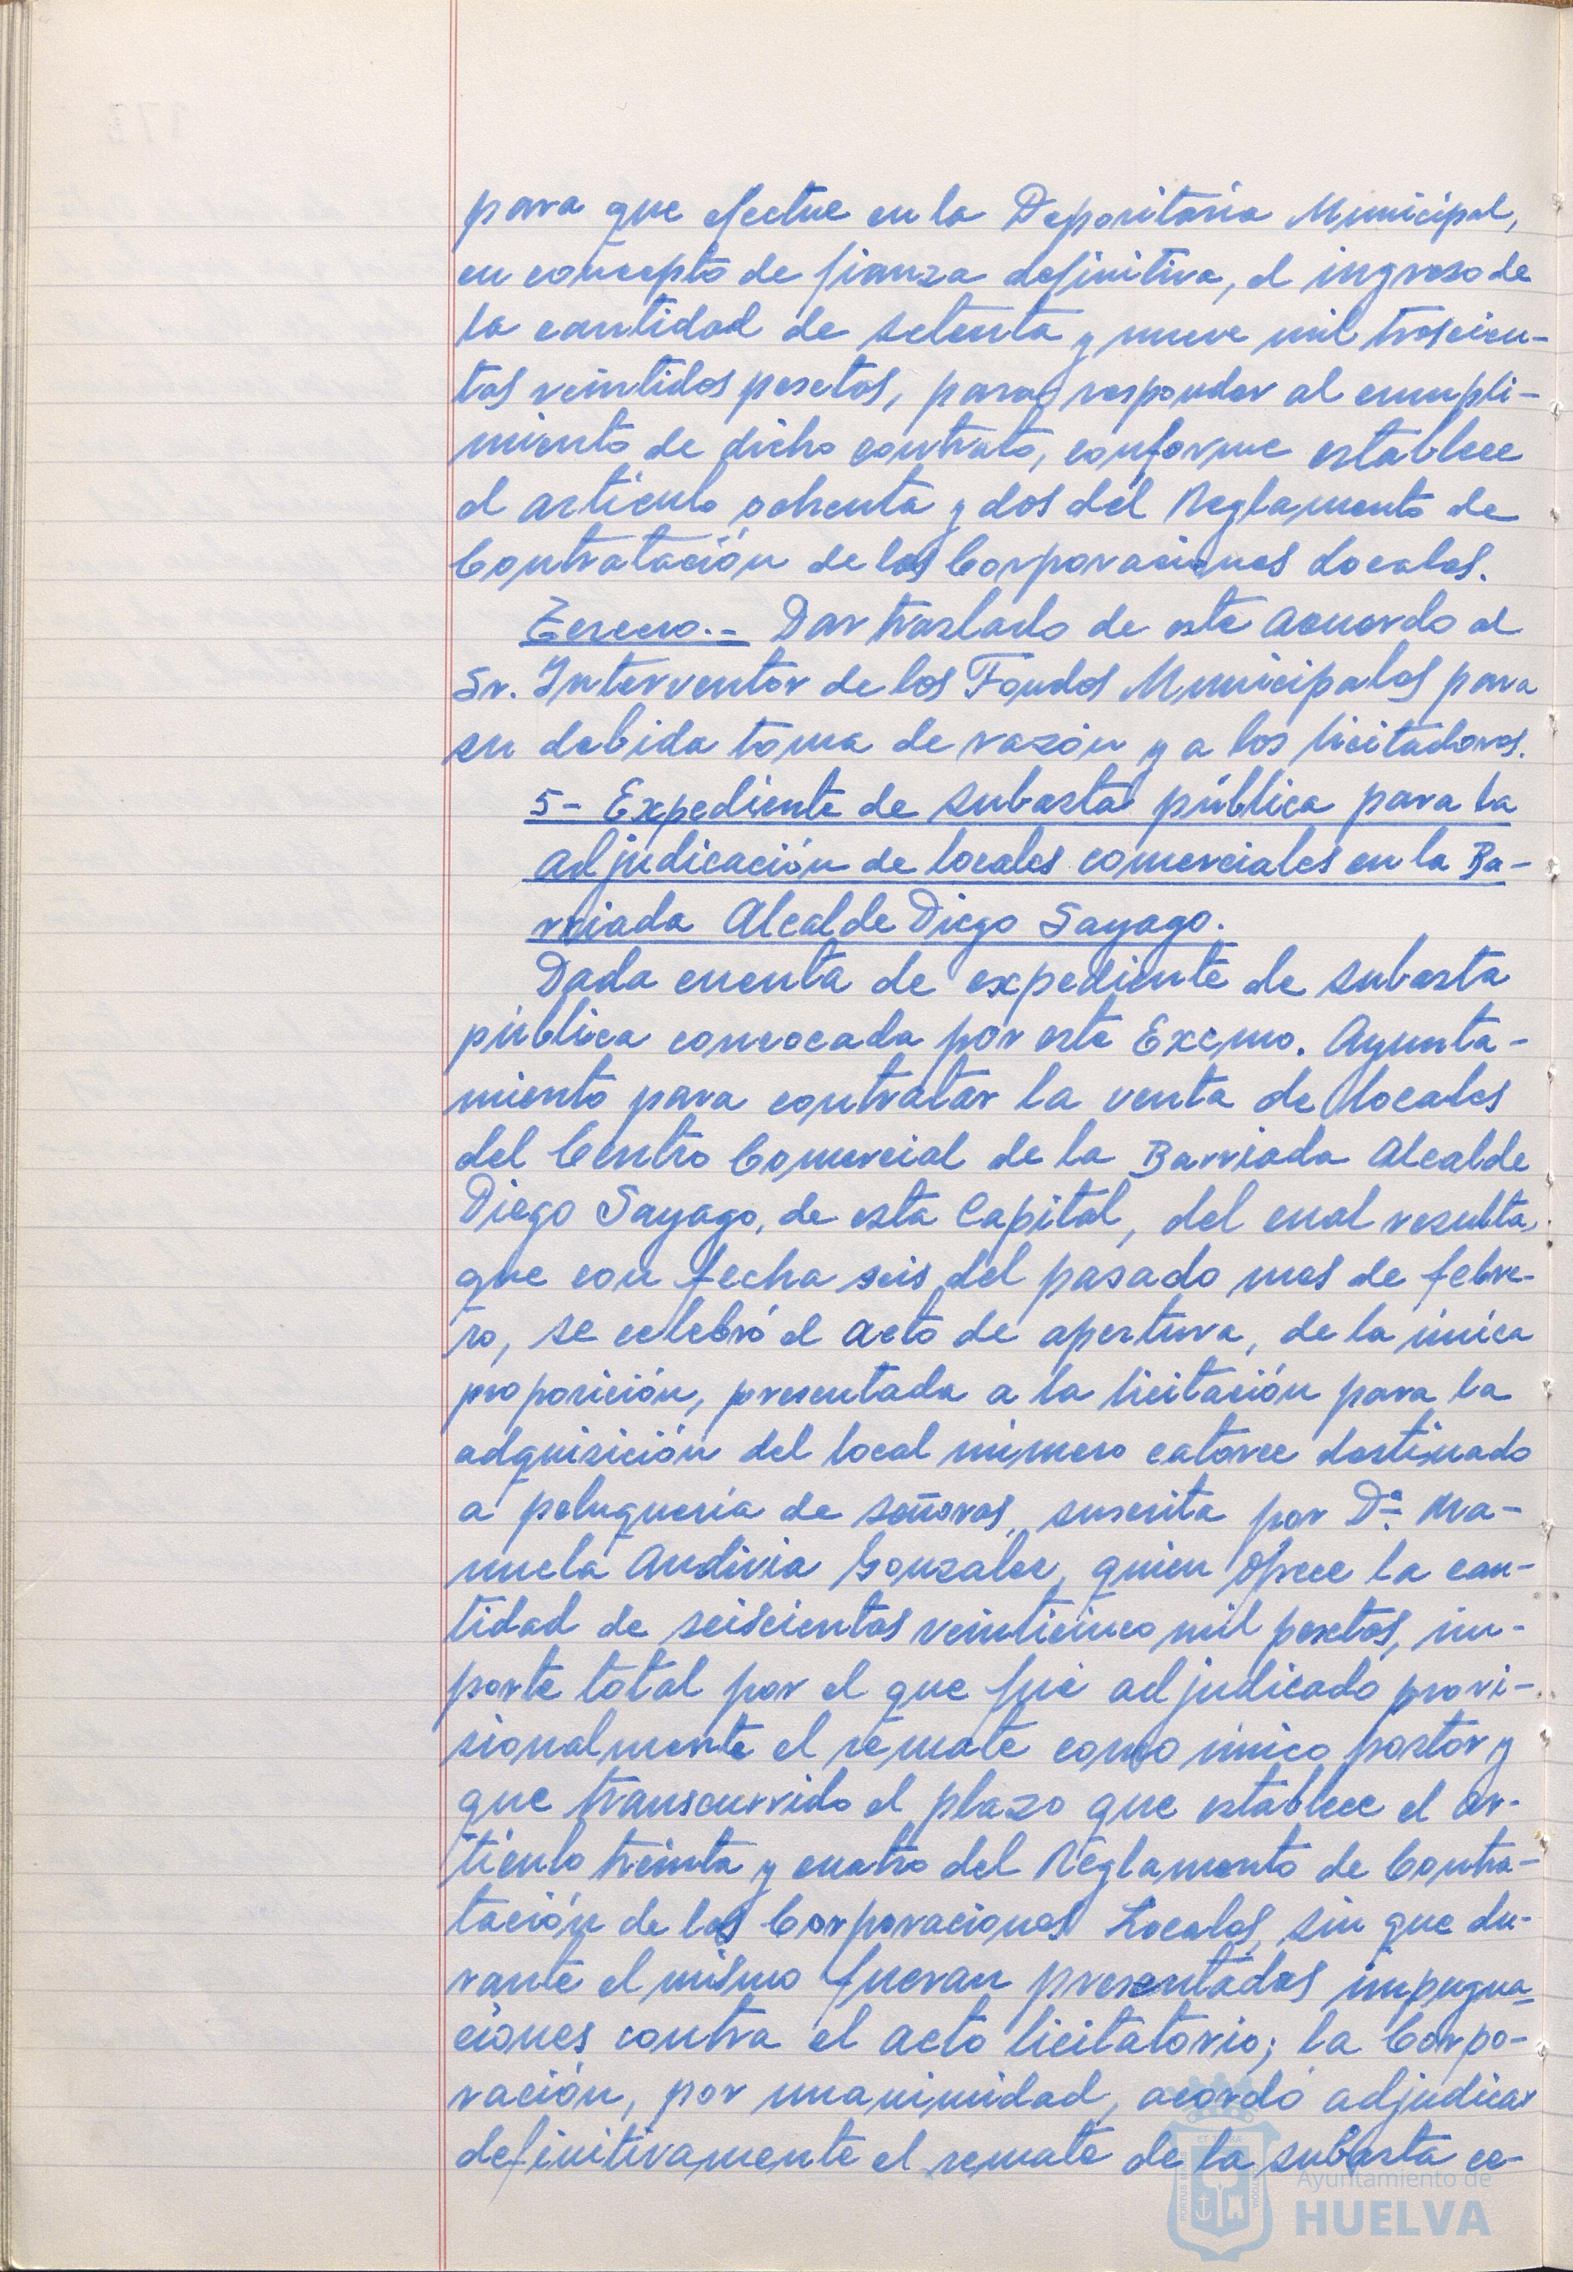 para que efectue en la Depositaria Municipal,
en concepto de fianza definitiva, el ingreso de
la cantidad de setenta y nueve mil trescien-
tas veintidos pesetas, para responder al cumpli-
miento de dicho contrato, conforme establece
el articulo ochenta y dos del Reglamento de
Contratación de las Corporaciones Locales.
Tercero.- Dar traslado de este acuerdo al
Sr. Interventor de los Fondos Municipales para
su debida toma de razón y a los licitadores.
5- Expediente de subasta pública para la
adjudicación de locales comerciales en la Ba-
rriada Alcalde Diego Sayago.
Dada cuenta de expediente de subasta
pública convocada por este Excmo. Ayunta-
miento para contratar la venta de locales
del Centro Comercial de la Barriada Alcalde
Diego Sayago, de esta Capital, del cual resulta,
que con fecha seis del pasado mes de febre-
ro, se celebró el acto de apertura, de la única
proposición, presentada a la licitación para la
adquisición del local número catorce destinado
a peluquería de señoras, suscrita por Dª. Ma-
nuela Andivia Gonzalez, quien ofrece la can-
tidad de seiscientas veinticinco mil pesetas, im-
porte total por el que fué adjudicado provi-
sionalmente el remate como único postor y
que transcurrido el plazo que establece el ar-
tículo treinta y cuatro del Reglamento de Contra-
tación de las Corporaciones Locales, sin que du-
rante el mismo fueran presentadas impugna-
ciones contra el acto licitatorio; la Corpo-
ración, por unanimidad, acordó adjudicar
definitivamente el remate de la subasta ce-
Ayuntamiento de
HUELVA